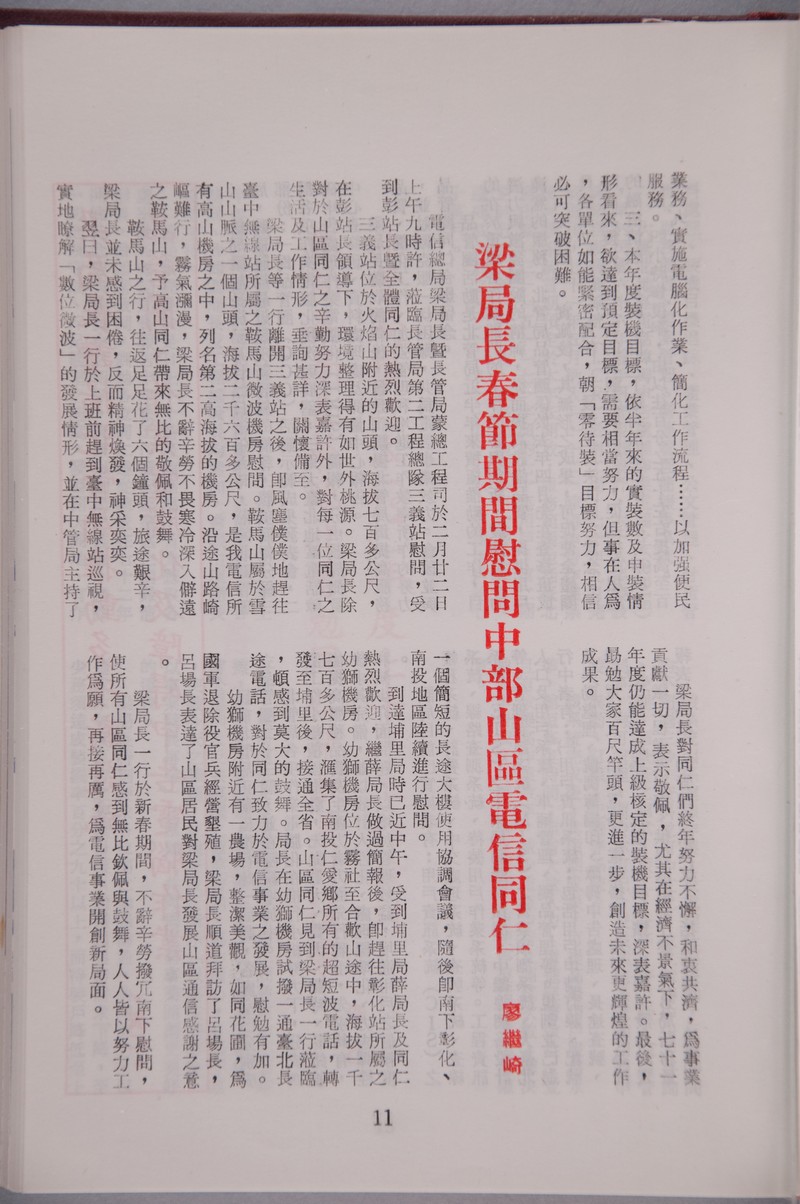 業務、實施電腦化作業、簡化工作流程……以加強便民
服務。
三、本年度裝機目標，依半年來的實裝數及申裝情
形看來，欲達到預定目標，需要相當努力，但事在人為
，各單位如能緊密配合，朝「零待裝」目標努力，相信
必可突破困難。
梁局長對同仁們終年努力不懈，和衷共濟，為事業
貢獻一切，表示敬佩，尤其在經濟不景氣下，七十一
年度仍能達成上級核定的裝機目標，深表嘉許。最後，
勗勉大家百尺竿頭，更進一步，創造未來更輝煌的工作
成果。
梁局長春節期間慰問中部山區電信同仁
廖繼崎
電信總局梁局長暨長管局蒙總工程司於二月廿二日
上午九時許，蒞臨長管局第二工程總隊三義站慰問，受
到彭站長暨全體同仁的熱烈歡迎。
三義站位於火焰山附近的山頭，海拔七百多公尺，
在彭站長領導下，環境整理得有如世外桃源。梁局長除
對於山區同仁之辛勤努力深表嘉許外，對每一位同仁之
生活及工作情形，垂詢甚詳，關懷備至。
梁局長等一行離開三義站之後，卽風塵僕僕地趕往
臺中無線站所屬之鞍馬山微波機房慰問。鞍馬山屬於雪
山山脈之一個山頭，海拔二千六百多公尺，是我電信所
有高山機房之中，列名第二高海拔的機房。沿途山路崎
嶇難行，霧氣瀰漫，梁局長不辭辛勞不畏寒冷深入僻遠
之鞍馬山，予高山同仁帶來無比的敬佩和鼓舞。
鞍馬山之行，往返足足花了六個鐘頭，旅途艱辛，
梁局長並未感到困倦，反而精神煥發，神采奕奕。
翌日，梁局長一行於上班前趕到臺中無線站巡視，
實地瞭解「數位微波」的發展情形，並在中管局主持了
一個簡短的長途大樓使用協調會議，隨後卽南下彰化、
南投地區陸續進行慰問。
到達埔里局時已近中午，受到埔里局薛局長及同仁
熱烈歡迎，繼薛局長做過簡報後，卽趕往彰化站所屬之
幼獅機房。幼獅機房位於霧社至合歡山途中，海拔一千
七百多公尺，滙集了南投仁愛鄉所有的超短波電話，轉
發至埔里後，接通全省。山區同仁見到梁局長一行蒞臨
，頓感到莫大的鼓舞。局長在幼獅機房試撥一通臺北長
途電話，對於同仁致力於電信事業之發展，慰勉有加。
幼獅機房附近有一農場，整潔美觀，如同花圃，為
國軍退除役官兵經營墾殖，梁局長順道拜訪了呂場長，
呂場長表達了山區居民對梁局長發展山區通信感謝之意
。
梁局長一行於新春期間，不辭辛勞撥冗南下慰問，
使所有山區同仁感到無比欽佩與鼓舞，人人皆以努力工
作為願，再接再厲，為電信事業開創新局面。
11